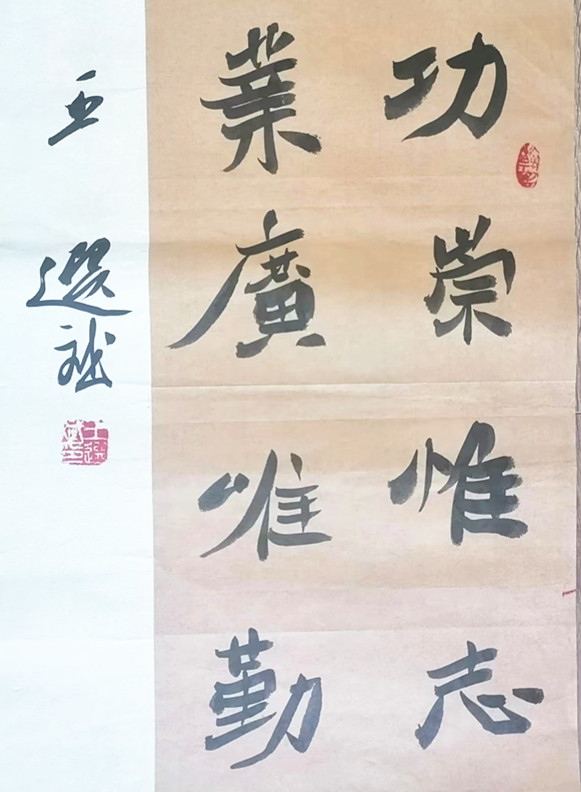 功崇惟志
業廣唯勤
王選斌